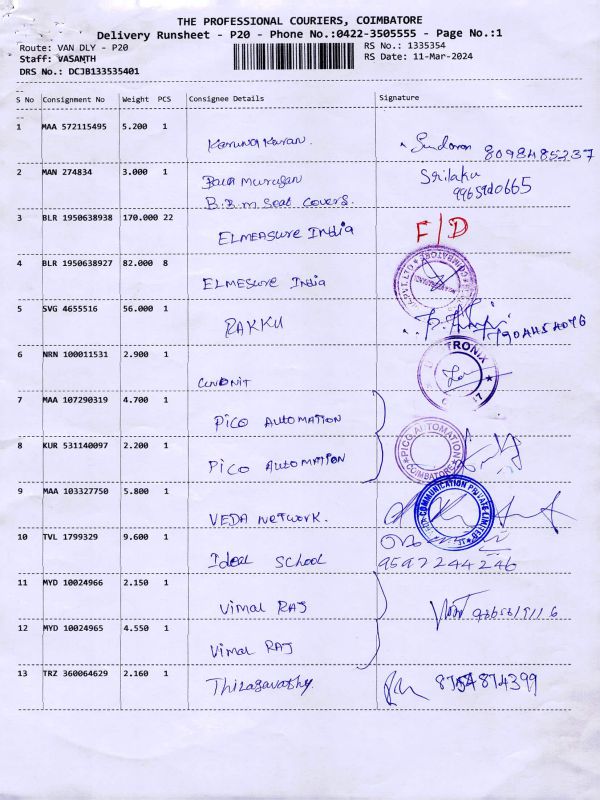 THE PROFESSIONAL COURIERS, COIMBATORE
Delivery Runsheet - P20 - Phone No.:0422-3505555 - Page No.:1
Route: VAN DLY - P20
RS No.: 1335354
Staff: VASANTH
RS Date: 11-Mar-2024
DRS No.: DCJB133535401
S No Consignment No Weight PCS Consignee Details Signature
1 MAA 572115495 5.200 1
Karunakaran. Sundaram 8098485237
2 MAN 274834 3.000 1 Bala Murugan Srilaku
B.B.M Seat Covers.
3 BLR 1950638938 170.000 22 ELMEASURE India F/D
4 BLR 1950638927 82.000 8 ELMESURE India
5 SVG 4655516 56.000 1 RAKKU
6 NRN 100011531 2.900 1 TRONIX
7 MAA 107290319 4.700 1 PICO AUTOMATION
8 KUR 531140097 2.200 1 PICO AUTOMATION PICO AUTOMATION COIMBATORE
9 MAA 103327750 5.800 1 VEDA NETWORK. COMMUNICATION PRIVATE LIMITED
10 TVL 1799329 9.600 1 Ideal School 9597244246
11 MYD 10024966 2.150 1 Vimal RAJ
12 MYD 10024965 4.550 1 Vimal RAJ
13 TRZ 360064629 2.160 1 8754874399